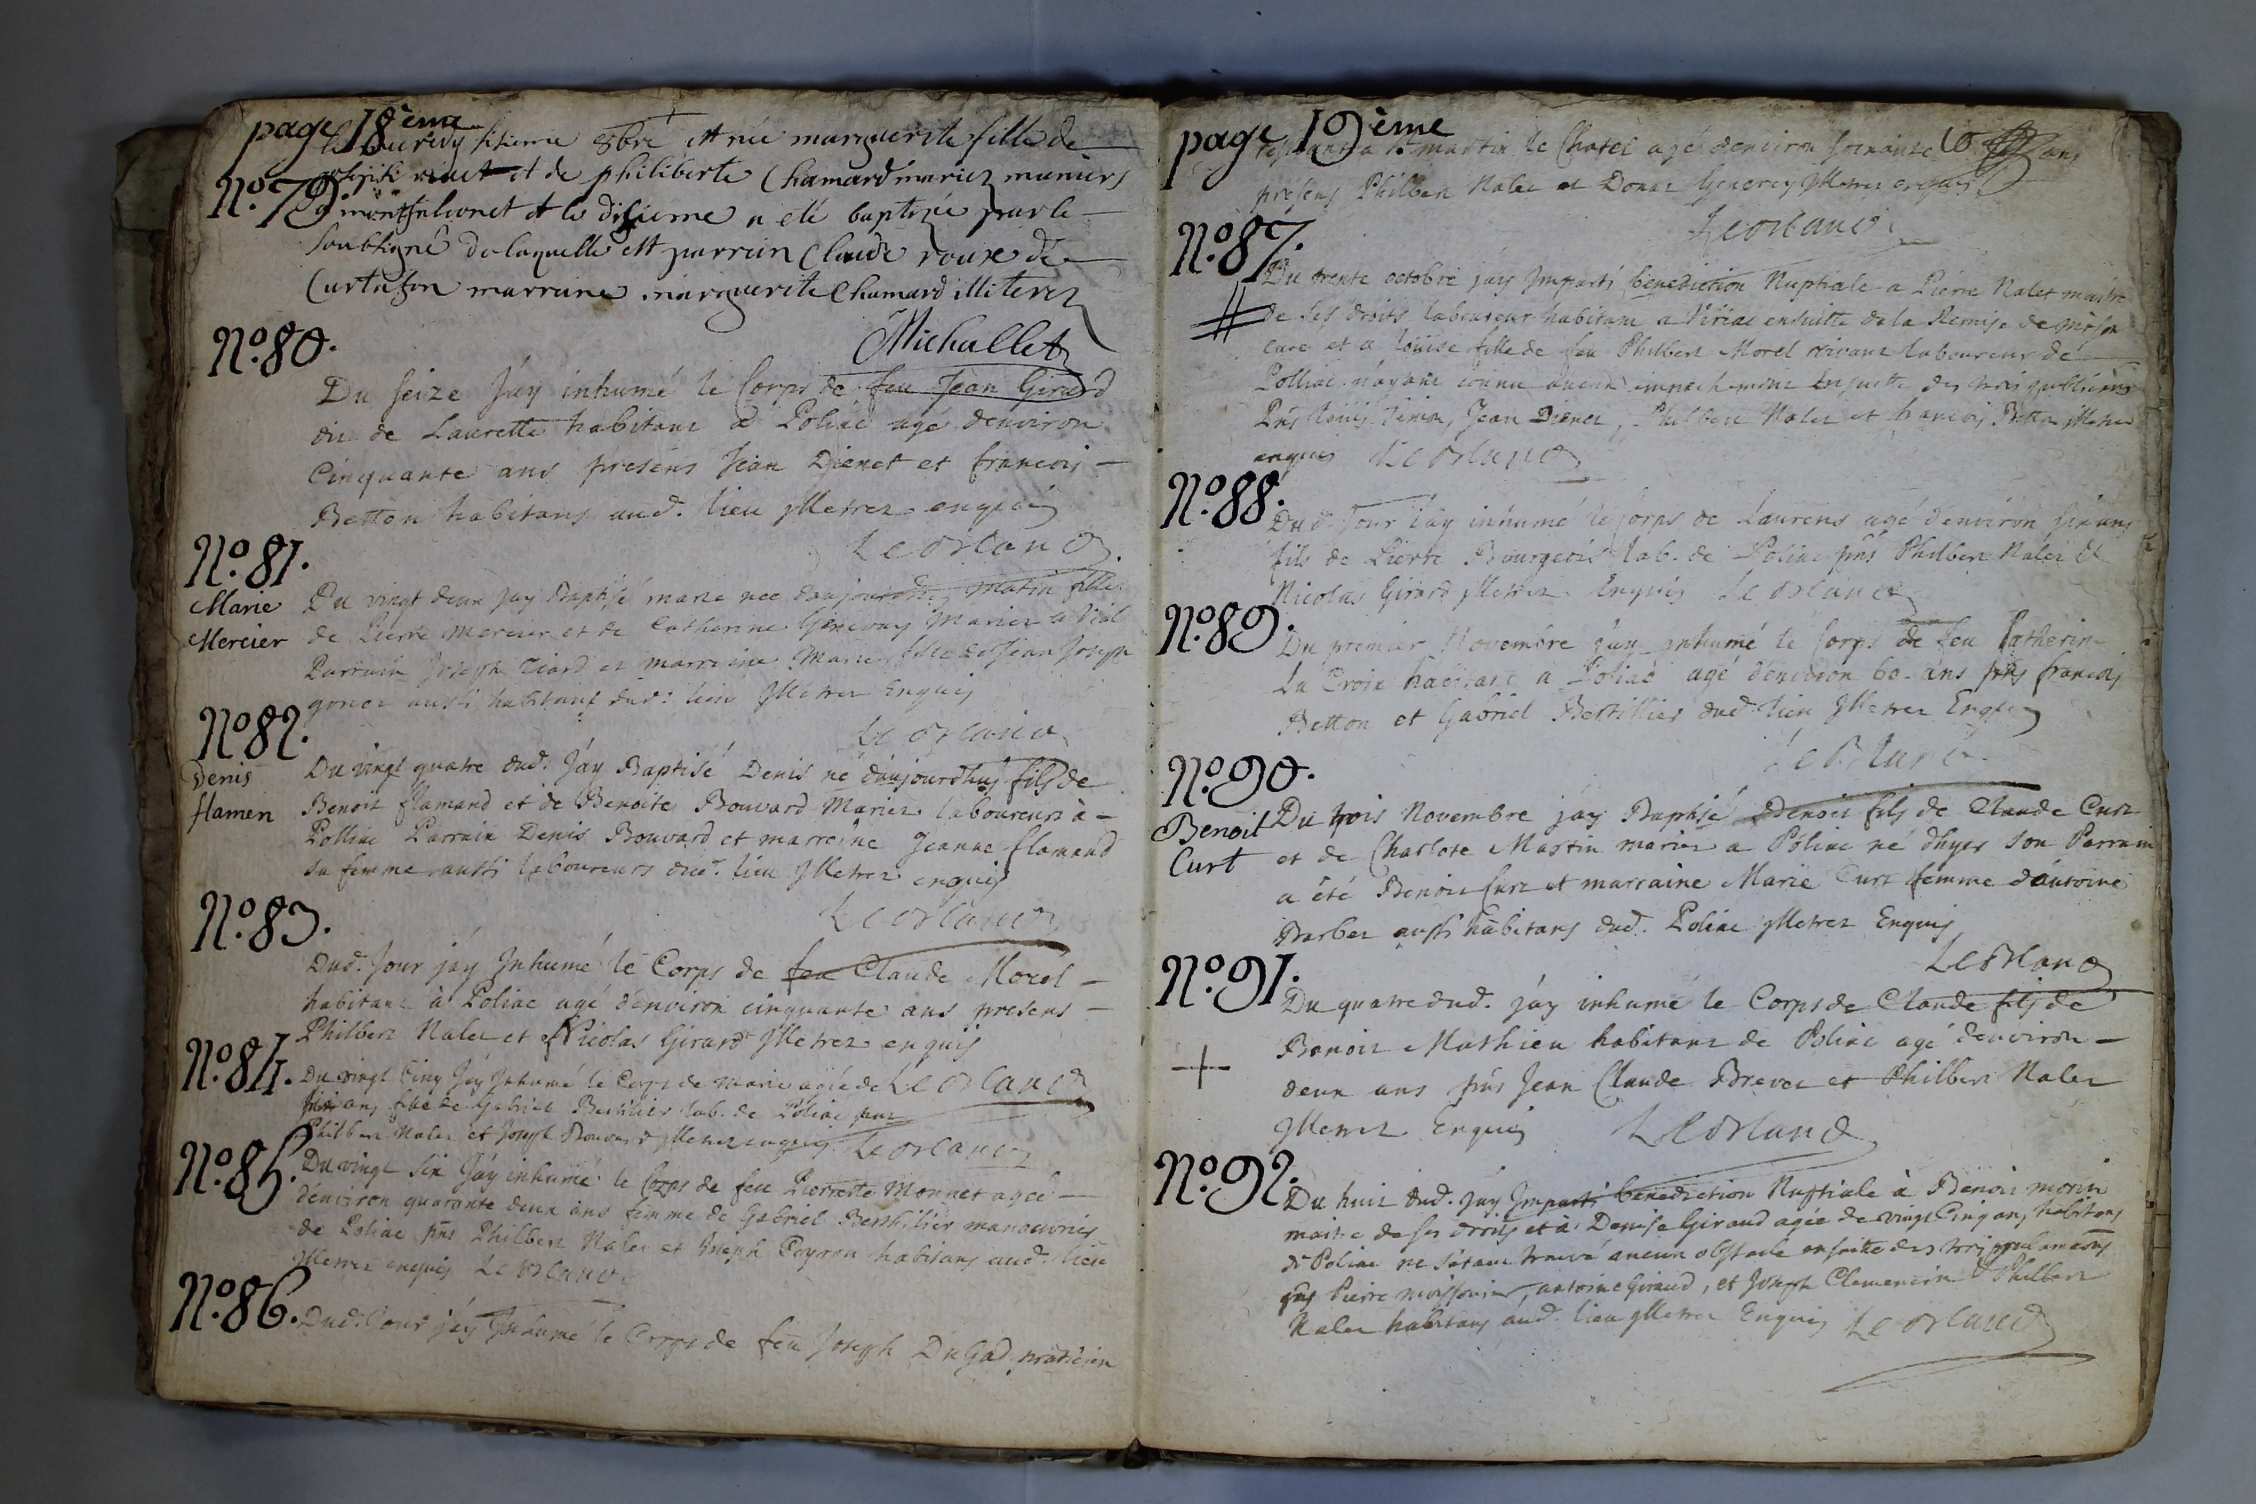 page 18ème
8bre est née marguerite fille de
et de philiberte Chamard mariez muniers
No. 79.
a été baptizée par le
soubsigné de laquelle est parrein Claude roux de
Curtafon marraine marguerite Chamard illiterez
Michallet
No. 80.
Du seize Jáy inhumé le Corps de feu Jean Girard
dit de Laurette habitant à Poliac agé denviron
Cinquante ans presens Jean Dienet et francois
Betton habitans aud. lieu Illetrez enquis
Leorland
No. 81.
Marie
Mercier
Du vingt deux Jay Baptisé marie nee daujourdhy matin fille
de Pierre Mercier et de Catherine Genevay Mariez a
Parrain Joseph Tiard et marraine Marie fille de Jean Joseph
aussi habitant dud. lieu Illetrez Enquis
Leorland
No. 82.
Denis
flamen
Du vingt quatre dud. Jáy Baptisé Denis né daujourdhuj fils de
Benoit flamand et de Benoite Bouvard Mariez laboureurs à
Polliac Parrain Denis Bouvard et marraine Jeanne flamand
sa femme aussi laboureurs dud. lieu Illetrez enquis
Leorland
No. 83.
Dud. Jour jáy Inhumé le Corps de feu Claude Morel
habitant à Poliac agé d'environ cinquante ans presens
Philbert Nalet et Nicolas Girard Illetrez enquis
No. 84.
Du vingt Cinq Jáy Inhumé le Corps de Marie agée de Leorland
ans fille de Gabriel Berthilier lab. de Poliac
Philbert Nalet et Joseph Bouvard Illetrez enquis Leorland
No. 85.
Du vingt six Jáy inhumé le Corps de feu Pierrette Monnet agée
d'environ quarante deux ans femme de Gabriel Berthilier manoeuvrier
de Poliac pns Philbert Nalet et Joseph Peyron habitans aud. lieu
Illetrez enquis Leorland
No. 86.
Dud. Jour jáy Inhumé le Corps de feu Joseph DuGad praticien
page 19ème
a St. martin le Chatel agé denviron soixante ans
presens Philbert Nalet et Donat Illetrez enquis
Leorland
No. 87.
Du trente octobre jáy Imparti benediction Nuptiale a Pierre Nalet maistre
de ses droits laboureur habitant a Viriac ensuitte de la Remise de Mr son
curé et a Loüise fille de feu Philbert Morel vivant laboureur de
Polliac n'ayant connu aucun empechement Ensuitte des trois publications
Pns Louis Jean Dienet, Philbert Nalet et francois Betton Illetrez
enquis Leorland
No. 88.
Dud. Jour Jáy inhumé le Corps de Laurens agé d'environ six ans
fils de Pierre Bourgeois lab. de Poliac pns Philbert Nalet et
Nicolas Girard Illetrez Enquis Leorland
No. 89.
Du premier Novembre jay inhumé le Corps de feu Catherin
La Croix habitant a Poliac agé d'environ 60 ans pns francois
Betton et Gabriel Bertillier dud. lieu Illetrez Enquis
Leorland
No. 90.
Benoit
Curt
Du trois Novembre jáy Baptisé Benoit fils de Claude Curt
et de Charlote Martin mariez a Poliac né d'hyer son Parrain
a été Benoit Curt et marraine Marie Curt femme d'antoine
Barbet aussi habitans dud. Poliac Illetrez Enquis
Leorland
No. 91.
Du quatre dud. jáy inhumé le Corps de Claude fils de
Benoit Mathieu habitant de Poliac agé denviron
deux ans pns Jean Claude Brevet et Philbert Nalet
Illetrez Enquis Leorland
No. 92.
Du huit dud. Jáy Imparti benediction Nuptiale à Benoit morin
maitre de ses droits et à Denise Giraud agée de vingt Cinq ans habitans
de Poliac ne s'étant trouvé aucun obstacle ensuite des trois proclamations
pns Pierre antoine Giraud, et Joseph Clemencin Philbert
Nalet habitans aud. lieu Illetrez Enquis Leorland